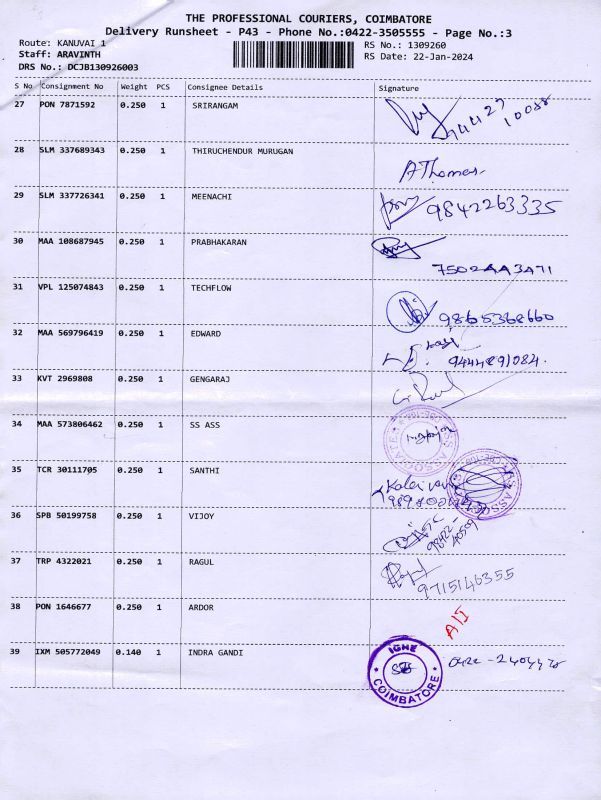 THE PROFESSIONAL COURIERS, COIMBATORE
Delivery Runsheet - P43 - Phone No.:0422-3505555 - Page No.:3
Route: KANUVAI 1
RS No.: 1309260
Staff: ARAVINTH
RS Date: 22-Jan-2024
DRS No.: DCJB130926003
S No Consignment No Weight PCS Consignee Details Signature
27 PON 7871592 0.250 1 SRIRANGAM
28 SLM 337689343 0.250 1 THIRUCHENDUR MURUGAN
A Thomas
29 SLM 337726341 0.250 1 MEENACHI
9842263335
30 MAA 108687945 0.250 1 PRABHAKARAN
31 VPL 125074843 0.250 1 TECHFLOW
9865368660
32 MAA 569796419 0.250 1 EDWARD
9444891084.
33 KVT 2969808 0.250 1 GENGARAJ
34 MAA 573806462 0.250 1 SS ASS
35 TCR 30111705 0.250 1 SANTHI
36 SPB 50199758 0.250 1 VIJOY
37 TRP 4322021 0.250 1 RAGUL
9715146355
38 PON 1646677 0.250 1 ARDOR
39 IXM 505772049 0.140 1 INDRA GANDI
COIMBATORE